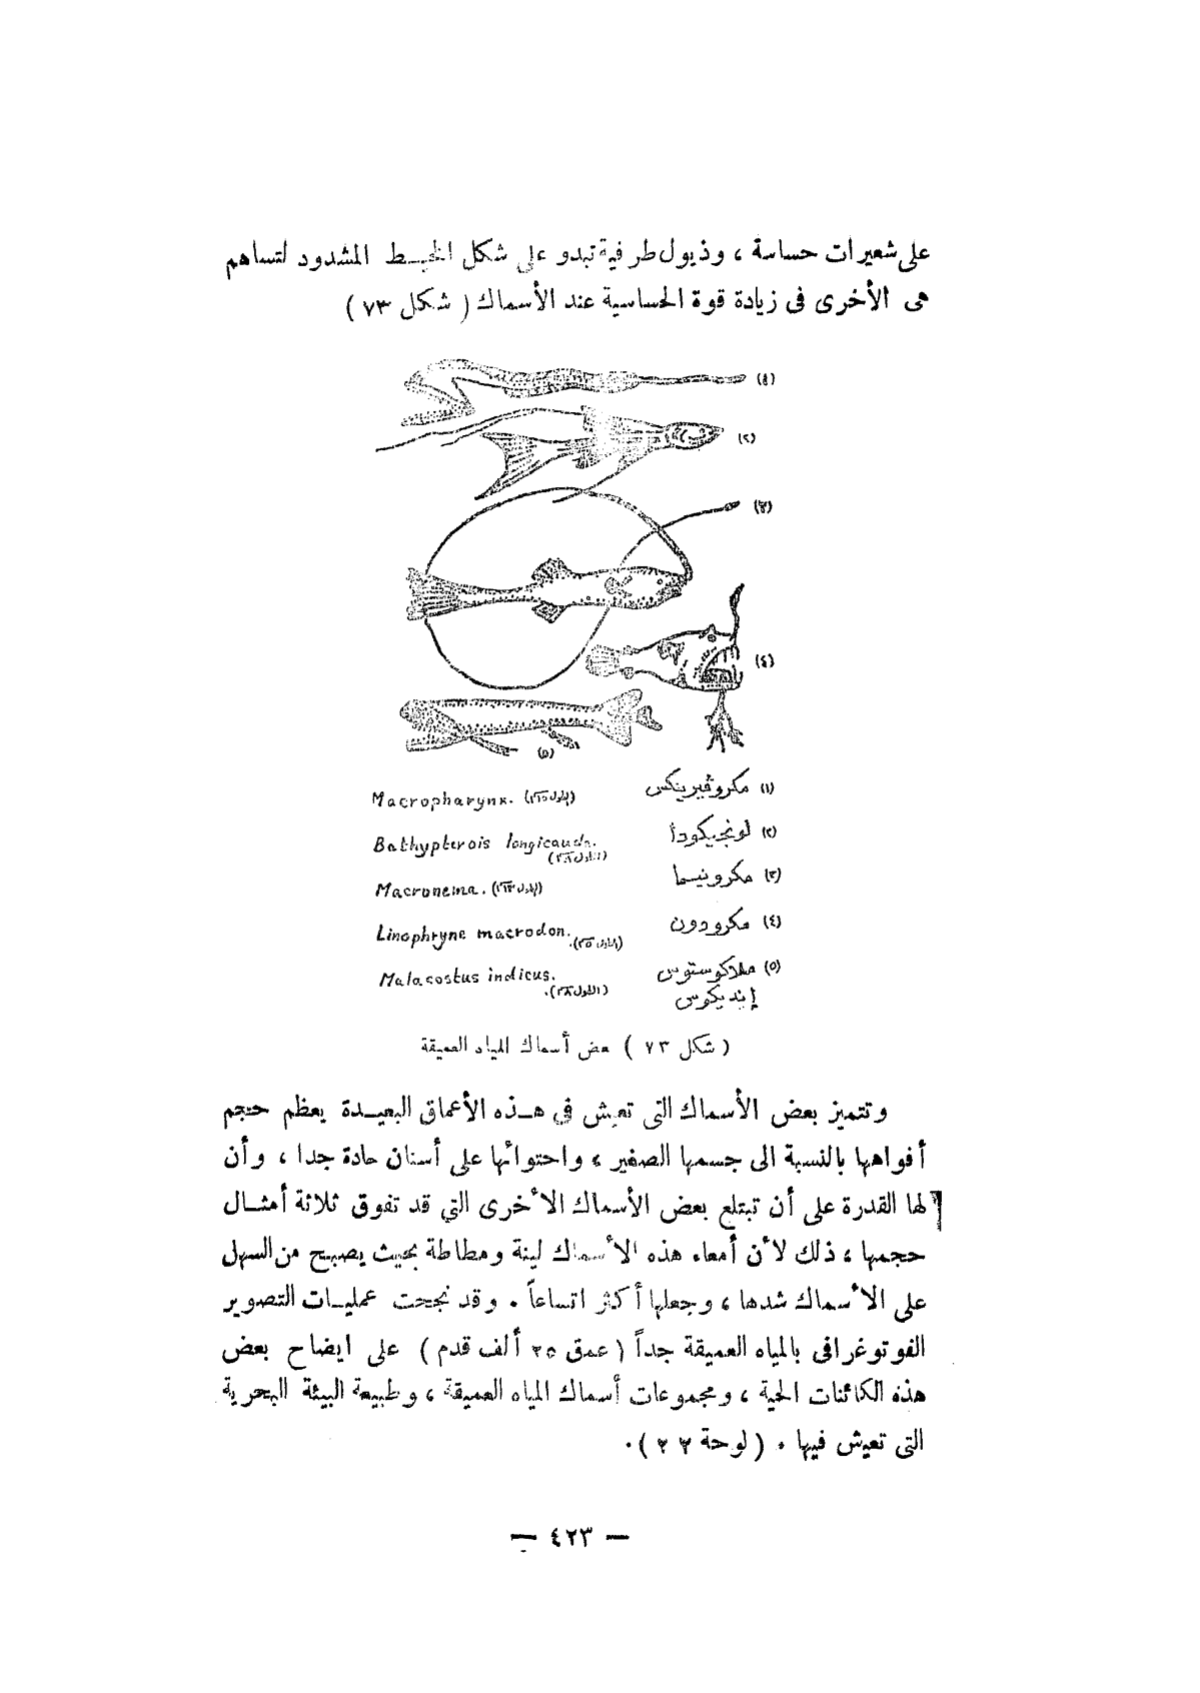 على شعيرات حساسة ، وذيول طرفية تبدو على شكل الخيـط المشدود لتساهم
هى الأخرى فى زيادة قوة الحساسية عند الأسماك ( شكل ٧٣ )
(١)
(٢)
(٣)
(٤)
(٥)
(١) مكروفيرينكس Macropharynx.
(٢) لونجيكودا Bathypterois longicauda.
(٣) مكرونيما Macronema.
(٤) مكرودون Linophryne macrodon.
(٥) ملاكوستوس Malacostus indicus.
إنديكوس
( شكل ٧٣ ) بعض أسماك المياه العميقة
وتتميز بعض الأسماك التى تعيش فى هـذه الأعماق البعيـدة بعظم حجم
أفواهها بالنسبة الى جسمها الصغير ، واحتوائها على أسنان حادة جدا ، وأن
لها القدرة على أن تبتلع بعض الأسماك الأخرى التي قد تفوق ثلاثة أمثـال
حجمها ، ذلك لأن أمعاء هذه الأسماك لينة ومطاطة بحيث يصبح من السهل
على الأسماك شدها ، وجعلها أكثر اتساعاً . وقد نجحت عمليـات التصوير
الفوتوغرافى بالمياه العميقة جداً ( عمق ٢٥ ألف قدم ) على ايضاح بعض
هذه الكائنات الحية ، ومجموعات أسماك المياه العميقة ، وطبيعة البيئة البحرية
التى تعيش فيها . ( لوحة ٢٢ ) .
— ٤٢٣ —